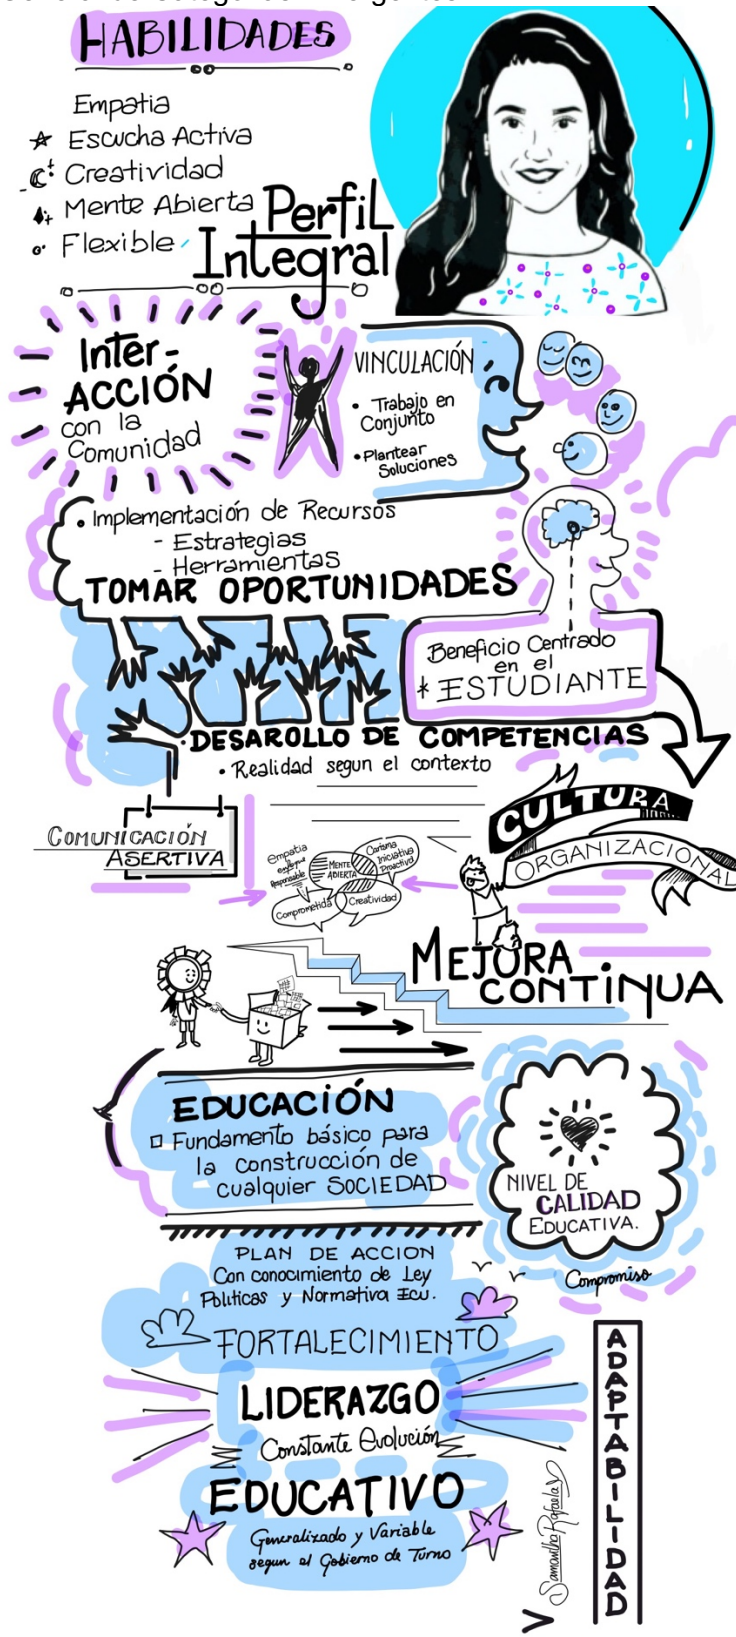 HABILIDADES
Empatia
Escucha Activa
Creatividad
Mente Abierta
Flexible
Perfil
Integral
Inter-
ACCIÓN
con la
Comunidad
VINCULACIÓN
• Trabajo en
Conjunto
• Plantear
Soluciones
• Implementación de Recursos
- Estrategias
- Herramientas
TOMAR OPORTUNIDADES
Beneficio Centrado
en el
* ESTUDIANTE
• DESAROLLO DE COMPETENCIAS
• Realidad segun el contexto
COMUNICACIÓN
ASERTIVA
CULTURA
ORGANIZACIONAL
Empatia
Responsable
MENTE
ABIERTA
Carisma
Iniciativa
Proactivo
Comprometida
Creatividad
MEJORA
CONTINUA
EDUCACIÓN
Fundamento básico para
la construcción de
cualquier SOCIEDAD
NIVEL DE
CALIDAD
EDUCATIVA.
Compromiso
PLAN DE ACCION
Con conocimiento de Ley
Políticas y Normativa Ecu.
FORTALECIMIENTO
LIDERAZGO
Constante Evolución
EDUCATIVO
Generalizado y Variable
segun el Gobierno de Turno
ADAPTABILIDAD
Samantha Rafaela